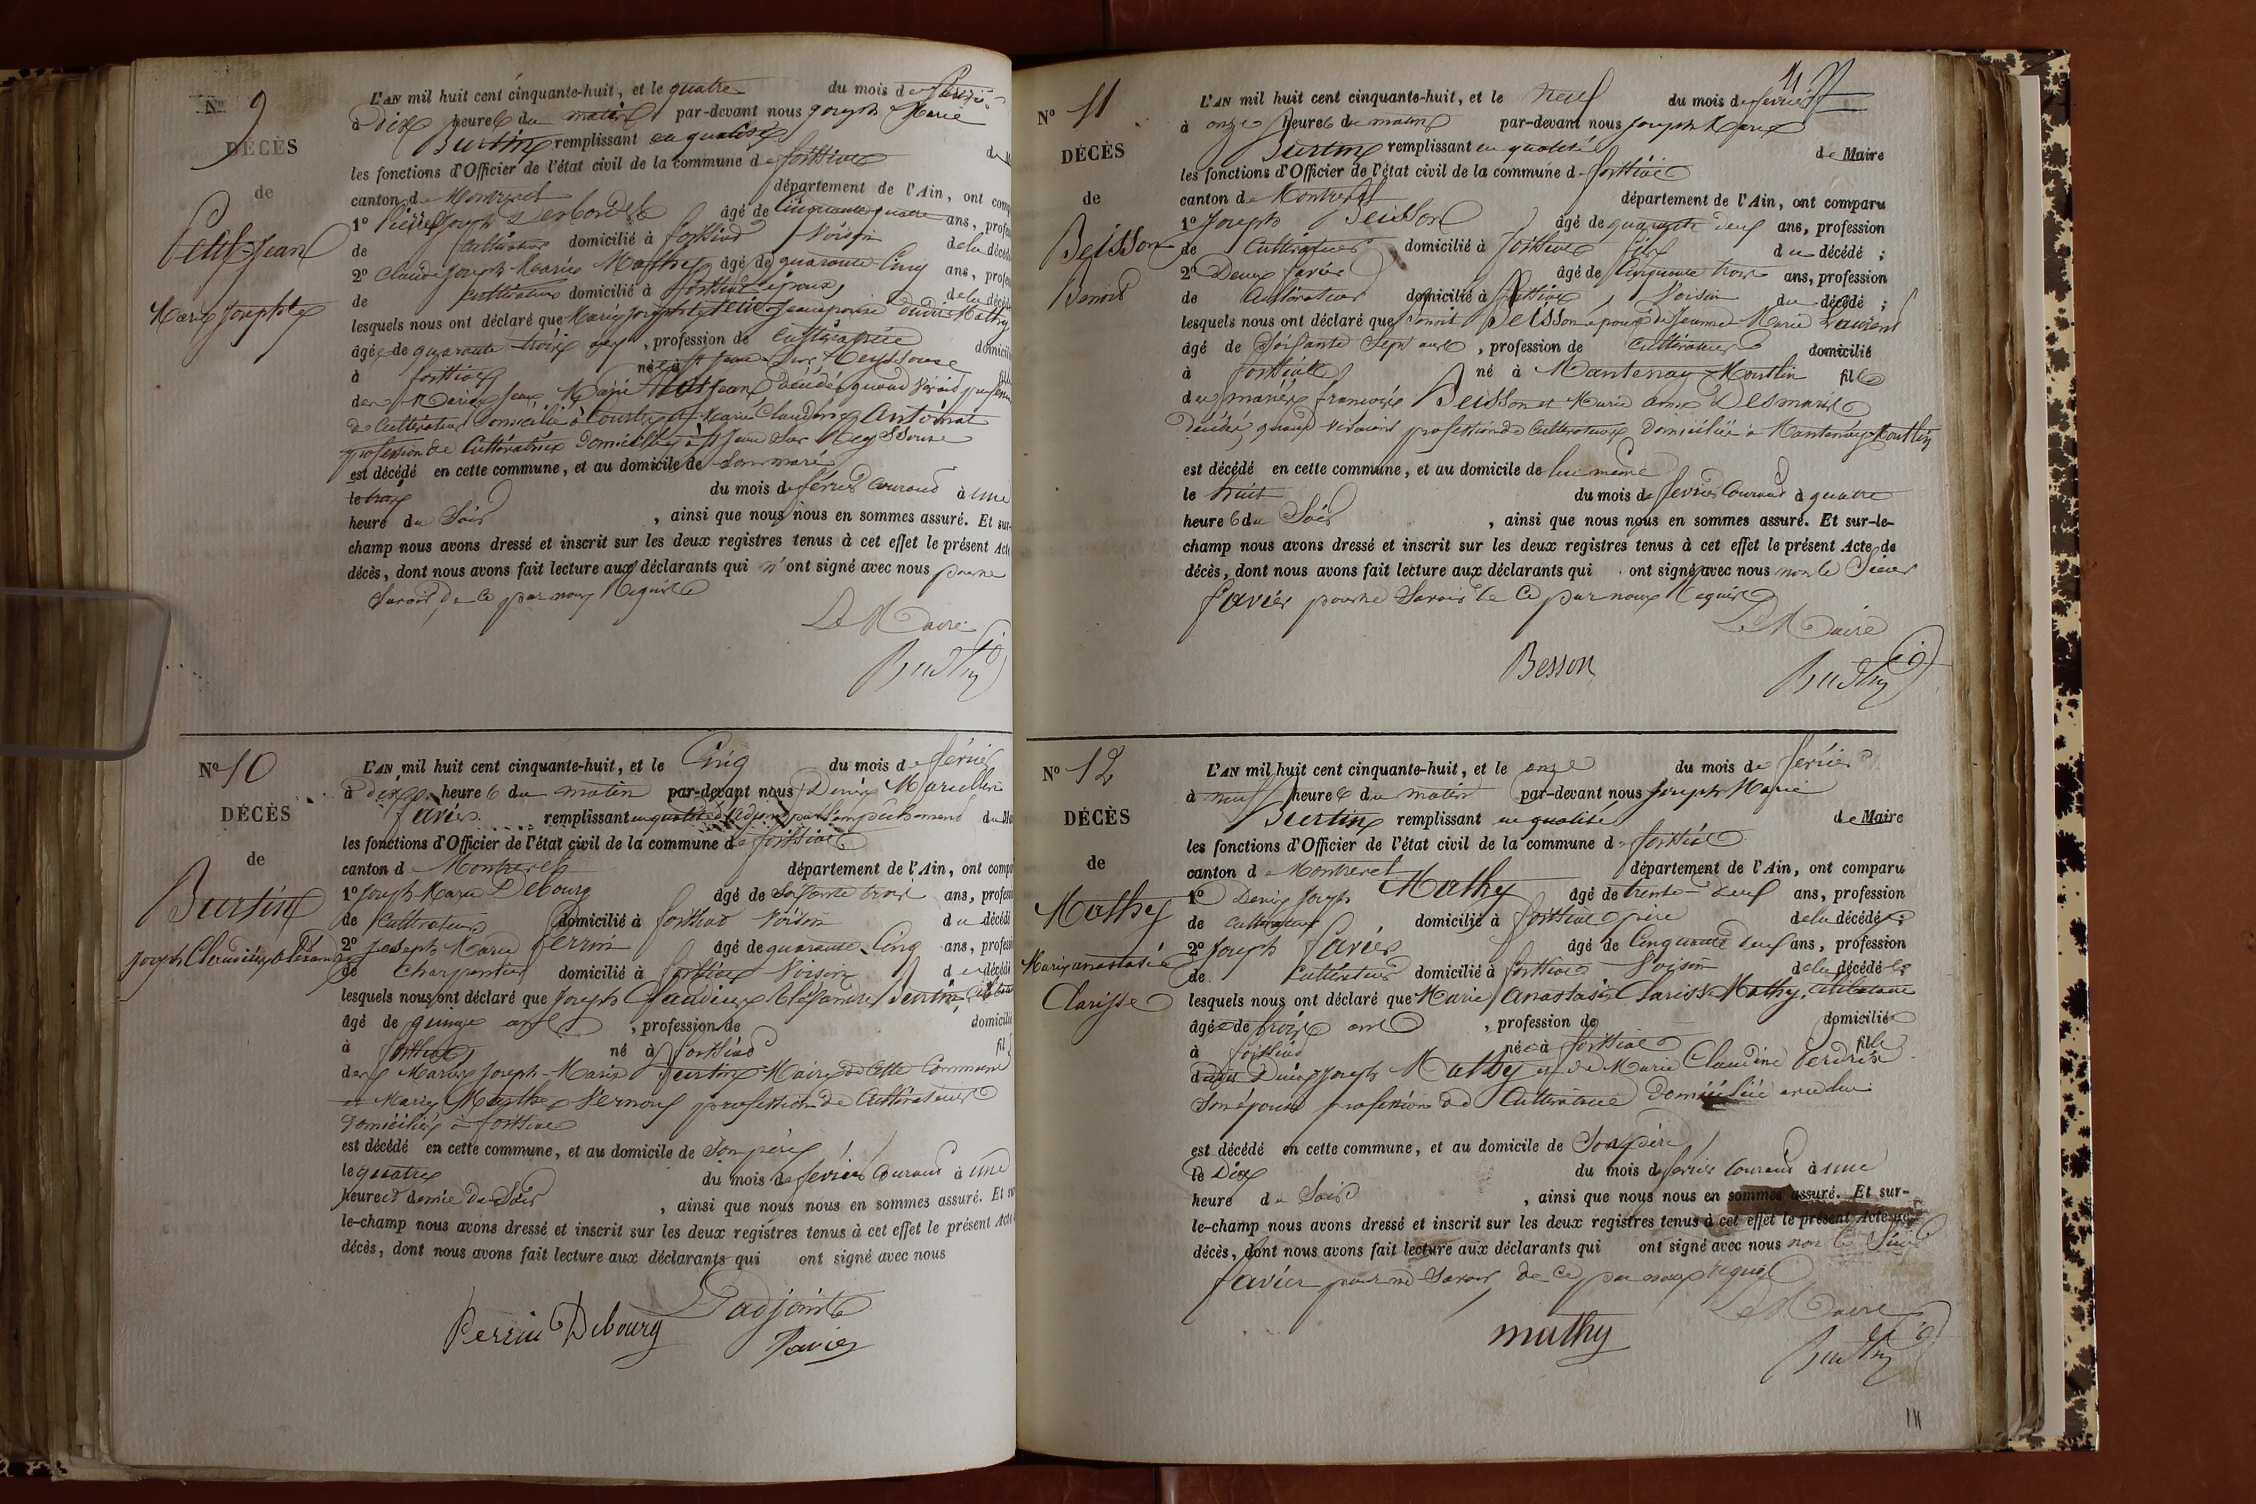 N° 9
DÉCÈS
de
Petit-Jean
Marie Josephte
L'AN mil huit cent cinquante-huit, et le quatre du mois de février
à dix heures du matin par-devant nous Joseph Marie
Burtin remplissant en qualité de
les fonctions d'Officier de l'état civil de la commune de foissiat
canton de Montrevel département de l'Ain, ont comparu
1° Pierre Joseph âgé de Cinquante quatre ans, profession
de Cultivateur domicilié à foissiat Voisin de la décédé
2° Claude Joseph Marie Mathy âgé de quarante Cinq ans, profession
de Cultivateur domicilié à foissiat époux de la décédé
lesquels nous ont déclaré que Marie Josephte Petit-Jean épouse dudit Mathy
âgée de quarante trois ans, profession de Cultivatrice domicilié
à foissiat né à St Jean Sur Reyssouze fille
de Marie Petit Jean décédé quand vivait profession
de Cultivateur domicilié à et Marie Claudine
profession de Cultivatrice domiciliée à St Jean Sur Reyssouze
est décédé en cette commune, et au domicile de Son mari
le trois du mois de février Courant à une
heure du Soir, ainsi que nous nous en sommes assuré. Et sur-
champ nous avons dressé et inscrit sur les deux registres tenus à cet effet le présent Acte
décès, dont nous avons fait lecture aux déclarants qui n'ont signé avec nous pour ne
Savoir de ce par nous Requis
Le Maire
Burtin
N° 10
DÉCÈS
de
Burtin
Joseph Claudius Alexandre
L'AN mil huit cent cinquante-huit, et le Cinq du mois de février
à dix heures du matin par-devant nous Denis Marcellin
favier remplissant en qualité d'adjoint par Empêchement du Maire
les fonctions d'Officier de l'état civil de la commune de foissiat
canton d Montrevel département de l'Ain, ont comparu
1° Joseph Marie Debourg âgé de Soixante trois ans, profession
de Cultivateur domicilié à foissiat Voisin du décédé
2° Joseph Marie Perrin âgé de quarante Cinq ans, profession
de Charpentier domicilié à foissiat Voisin du décédé
lesquels nous ont déclaré que Joseph Claudius Alexandre Burtin Célibataire
âgé de quinze ans, profession de domicilié
à foissiat né à foissiat fils
de Joseph-Marie Burtin Maire de Cette Commune
et Marie Marthe Vernoux profession de Cultivateurs
domiciliés à foissiat
est décédé en cette commune, et au domicile de Son père
le quatre du mois de février Courant à une
heure et demie du Soir, ainsi que nous nous en sommes assuré. Et sur
le-champ nous avons dressé et inscrit sur les deux registres tenus à cet effet le présent Acte
décès, dont nous avons fait lecture aux déclarants qui ont signé avec nous
L'adjoint
Perrin Debourg
favier
11
N° 11
DÉCÈS
de
Beisson
Benoit
L'AN mil huit cent cinquante-huit, et le neuf du mois de février
à onze heures du matin par-devant nous Joseph Marie
Burtin remplissant en qualité de Maire
les fonctions d'Officier de l'état civil de la commune de foissiat
canton de Montrevel département de l'Ain, ont comparu
1° Joseph Beisson âgé de quarante deux ans, profession
de Cultivateur domicilié à foissiat fils du décédé ;
2° Denis favier âgé de Cinquante trois ans, profession
de Cultivateur domicilié à foissiat Voisin du décédé ;
lesquels nous ont déclaré que Benoit Beisson époux de Jeanne Marie Laurent
âgé de Soixante Sept ans, profession de Cultivateur domicilié
à foissiat né à Mantenay-Montlin fils
de mariés françois Beisson et Marie anne Desmaris
décédés quand vivaient profession de Cultivateurs domiciliés à Mantenay-Montlin
est décédé en cette commune, et au domicile de lui même
le huit du mois de février Courant à quatre
heures du Soir, ainsi que nous nous en sommes assuré. Et sur-le-
champ nous avons dressé et inscrit sur les deux registres tenus à cet effet le présent Acte de
décès, dont nous avons fait lecture aux déclarants qui ont signé avec nous non le Sieur
favier pour ne Savoir de ce par nous Requis
Le Maire
Besson
Burtin
N° 12
DÉCÈS
de
Mathy
Marie anastasie
Clarisse
L'AN mil huit cent cinquante-huit, et le onze du mois de février
à neuf heures du matin par-devant nous Joseph Marie
Burtin remplissant en qualité de Maire
les fonctions d'Officier de l'état civil de la commune de foissiat
canton d Montrevel département de l'Ain, ont comparu
1° Denis Joseph Mathy âgé de trente-deux ans, profession
de Cultivateur domicilié à foissiat père de la décédée ;
2° Joseph favier âgé de Cinquante deux ans, profession
de Cultivateur domicilié à foissiat Voisin de la décédée ;
lesquels nous ont déclaré que Marie anastasie Clarisse Mathy, Célibataire
âgée de trois ans, profession de domiciliée
à foissiat née à foissiat fille
dudit Denis Joseph Mathy et de Marie Claudine Perdrix
Son épouse profession de Cultivatrice domiciliée avec lui
est décédé en cette commune, et au domicile de Son père
le Dix du mois de février Courant à une
heure du Soir, ainsi que nous nous en sommes assuré. Et sur-
le-champ nous avons dressé et inscrit sur les deux registres tenus à cet effet le présent Acte de
décès, dont nous avons fait lecture aux déclarants qui ont signé avec nous non le Sieur
favier pour ne Savoir de ce par nous Requis
Le Maire
mathy
Burtin